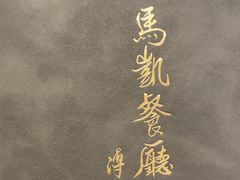 馬凱餐廳
溥